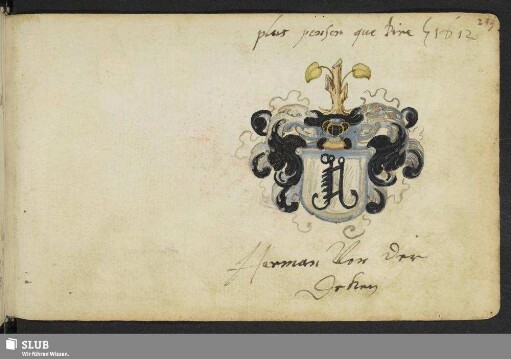 plus penser que dire 1612
239
Herman Von der
Deken
SLUB
Wir führen Wissen.